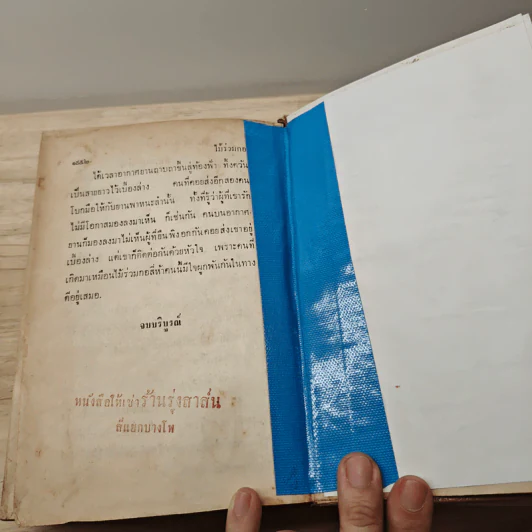 ๑๕๕๒
ไม้ร่วมกอ
ได้เวลาอากาศยานถาบถาขึ้นสู่ท้องฟ้า ทิ้งควัน
เป็นสายยาวไว้เบื้องล่าง คนที่คอยส่งอีกสองคน
โบกมือให้กับยานพาหนะลำนั้น ทั้งที่รู้ว่าผู้ที่เขารัก
ไม่มีโอกาสมองลงมาเห็น ก็เช่นกัน คนบนอากาศ
ยานก็มองลงมาไม่เห็นผู้ที่ยืนพิงอกกันคอยส่งเขาอยู่
เบื้องล่าง แต่เขาก็คิดต่อกันด้วยหัวใจ เพราะคนที่
เกิดมาเหมือนไม้ร่วมกอสี่ห้าคนนี้มีใจผูกพันกันในทาง
ดีอยู่เสมอ.
จบบริบูรณ์
หนังสือให้เช่าร้านรุ่งสาส์น
สี่แยกบางโพ